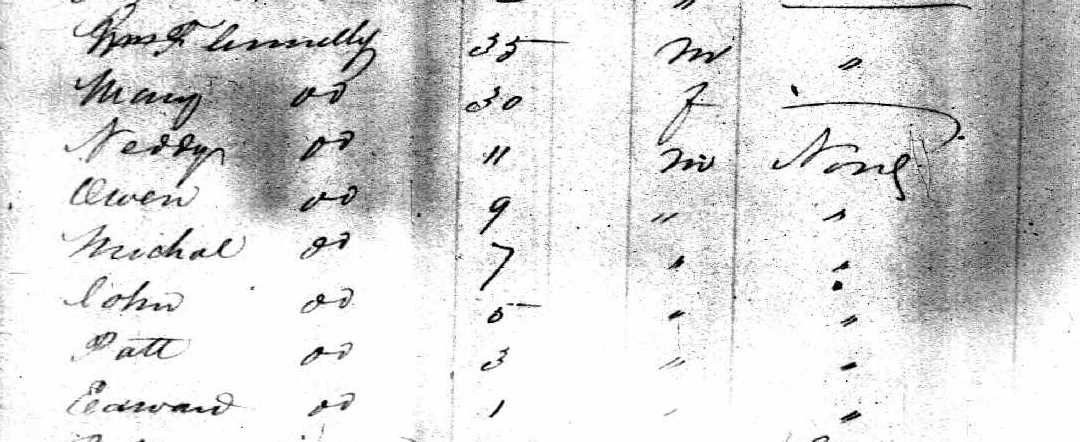 Wm F Connelly 35 m "
Mary do 30 f
Neddy do 11 m None
Owen do 9 " "
Michal do 7 " "
John do 5 " "
Patt do 3 " "
Edward do 1 " "